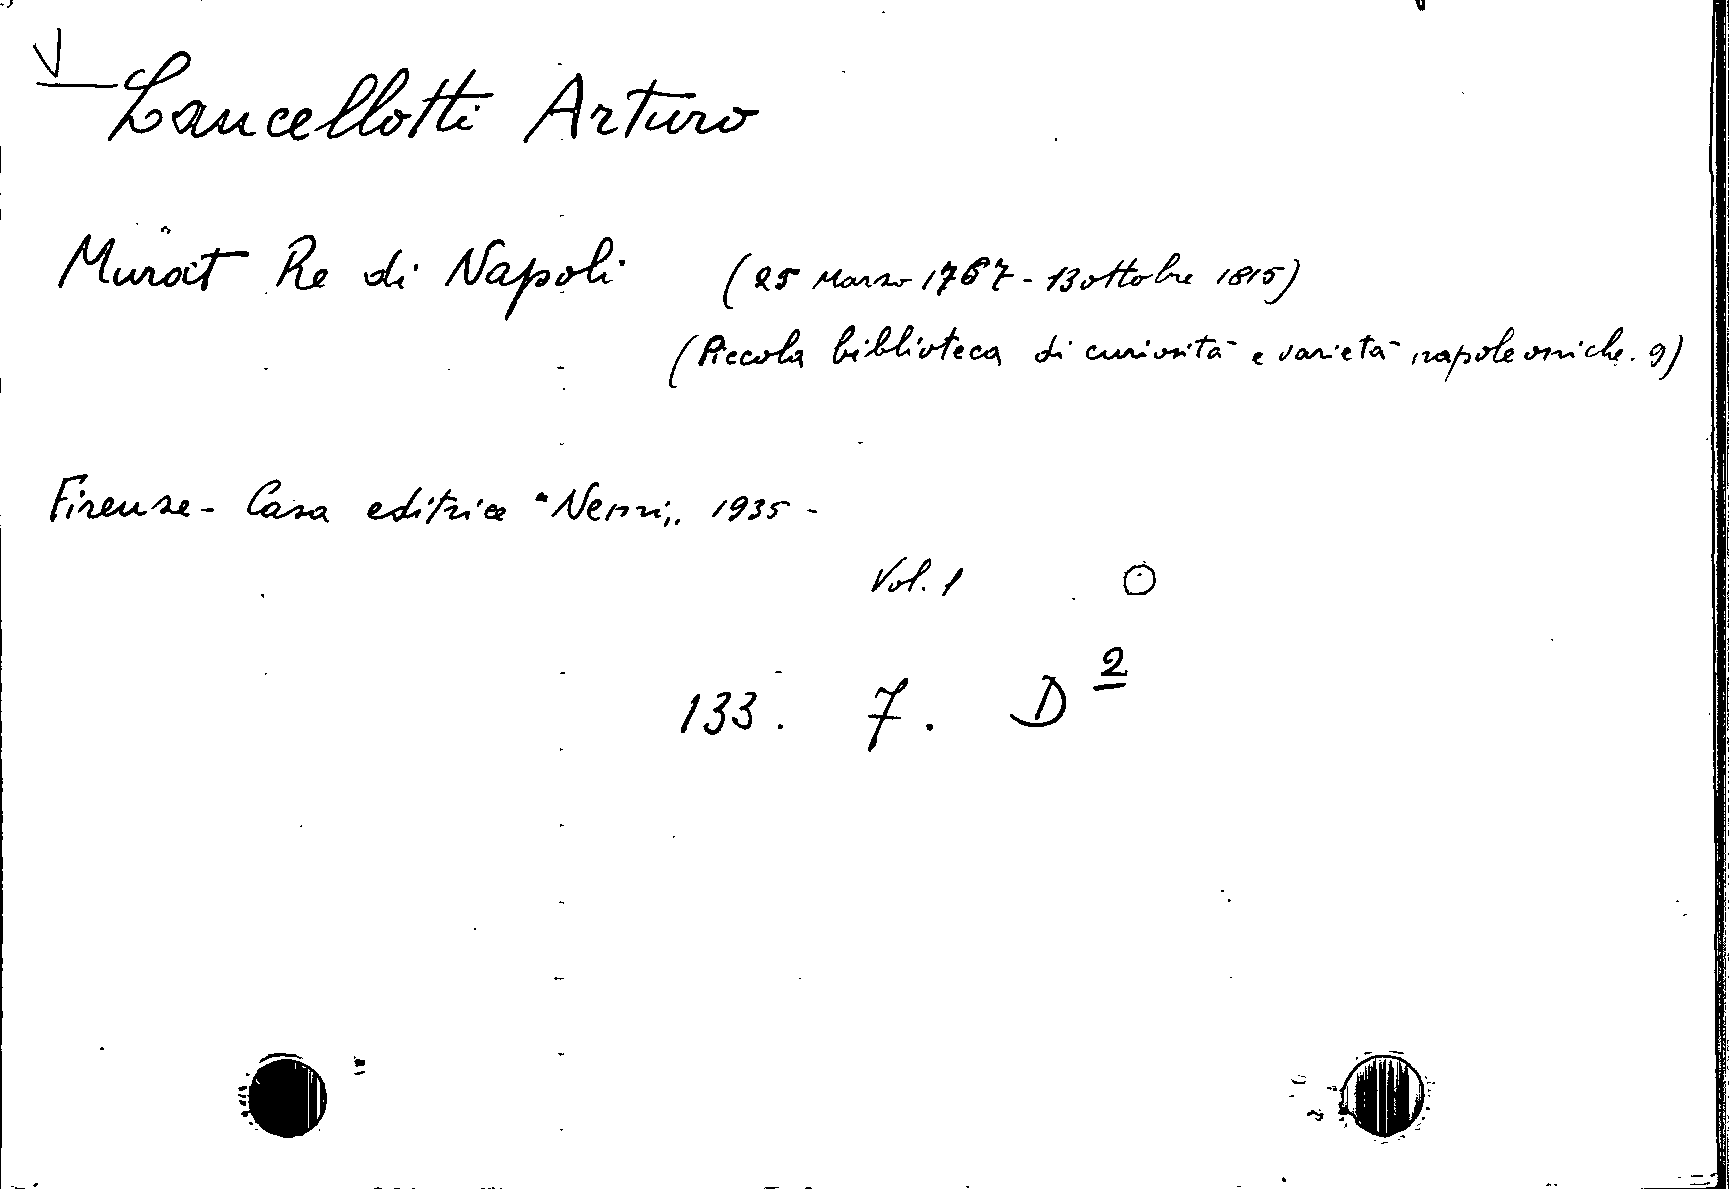 V
Lancellotti Arturo
Murat Re di Napoli (25 Marzo 1767 - 13 ottobre 1815)
(Piccola biblioteca di curiosità e varietà napoleoniche. 9)
Firenze - Casa editrice "Nemi„. 1935 -
Vol. 1 O
133. 7. D 2